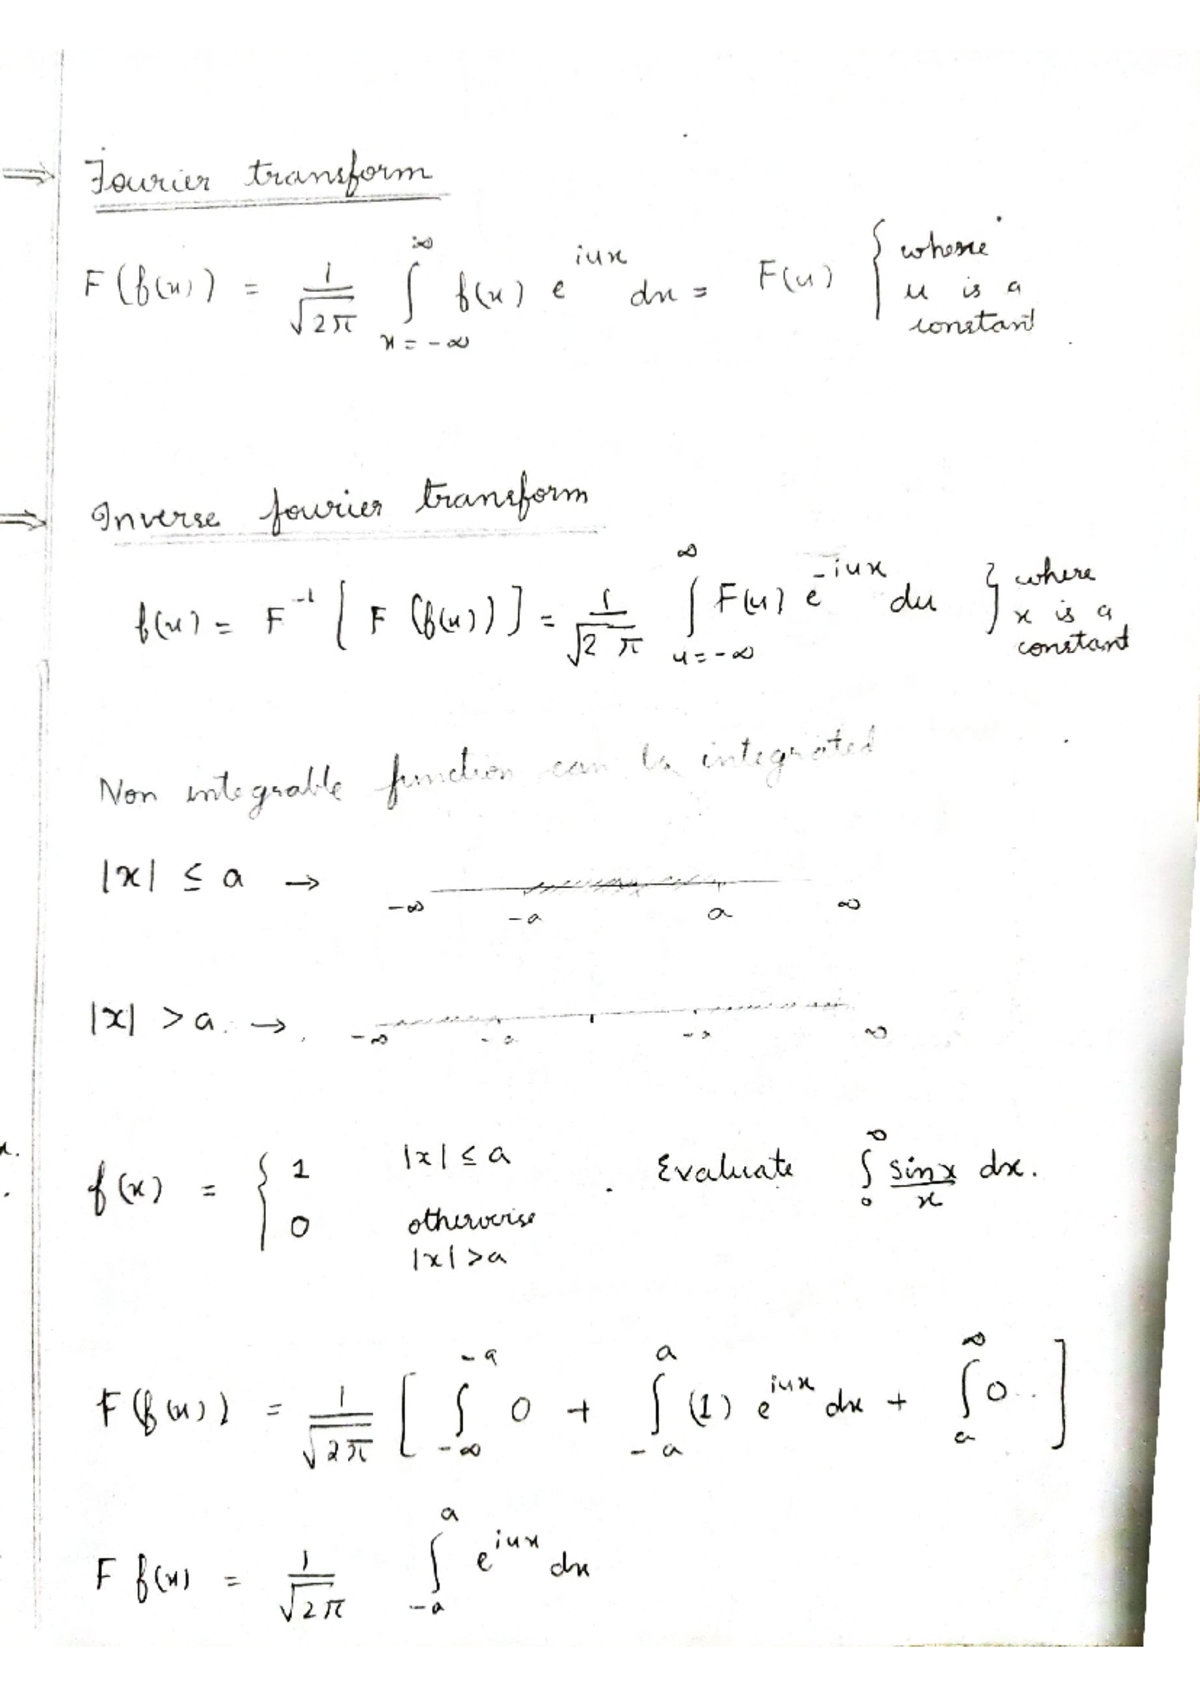 ⇒ Fourier transform
F(f(x)) = 1/√2π ∫_{x=-∞}^{∞} f(x) e^{iux} dx = F(u) { where u is a constant
⇒ Inverse fourier transform
f(x) = F^{-1} [ F (f(x)) ] = 1/√2π ∫_{u=-∞}^{∞} F(u) e^{-iux} du } where x is a constant
Non integrable function can be integrated
|x| ≤ a →
-∞ -a a ∞
|x| > a. →
-∞ ∞
f(x) = { 1 |x| ≤ a
0 otherwise |x| > a
. Evaluate ∫_0^∞ sinx/x dx.
F(f(x)) = 1/√2π [ ∫_{-∞}^{-a} 0 + ∫_{-a}^{a} (1) e^{iux} dx + ∫_a^∞ 0.. ]
F f(x) = 1/√2π ∫_{-a}^{a} e^{iux} dx